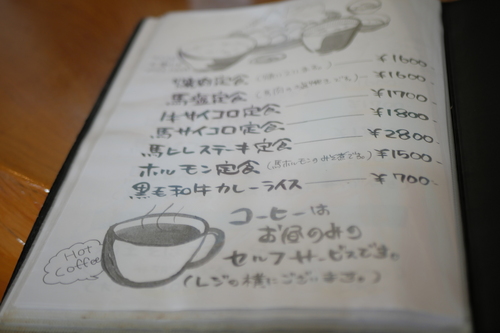 焼肉定食 ¥1600
馬焼定食 ¥1600
牛サイコロ定食 ¥1700
馬サイコロ定食 ¥1800
馬ヒレステーキ定食 ¥2800
ホルモン定食 (馬ホルモンのみもできます) ¥1500
黒毛和牛カレーライス ¥700
Hot Coffee
コーヒーは
お昼のみの
セルフサービスです。
(レジの横にございます。)